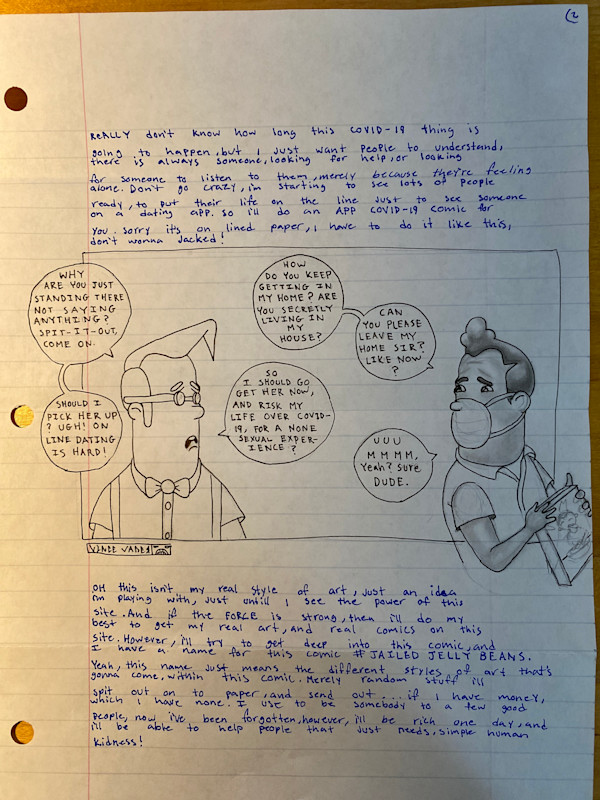 2
REALLY don't know how long this COVID-19 thing is
going to happen, but I just want people to understand,
there is always someone, looking for help, or looking
for someone to listen to them, merely because they're feeling
alone. Don't go crazy, i'm starting to see lots of people
ready, to put their life on the line just to see someone
on a dating app. so i'll do an APP COVID-19 comic for
you. sorry it's on lined paper, I have to do it like this,
don't wonna Jacked!
WHY
ARE YOU JUST
STANDING THERE
NOT SAYING
ANYTHING?
SPIT-IT-OUT,
COME ON.
SHOULD I
PICK HER UP
? UGH! ON
LINE DATING
IS HARD!
HOW
DO YOU KEEP
GETTING IN
MY HOME? ARE
YOU SECRETLY
LIVING IN
MY
HOUSE?
CAN
YOU PLEASE
LEAVE MY
HOME SIR?
LIKE NOW
?
SO
I SHOULD GO
GET HER NOW,
AND RISK MY
LIFE OVER COVID-
19, FOR A NONE
SEXUAL EXPER-
IENCE?
UUU
MMMM,
Yeah? Sure
DUDE.
OH this isn't my real style of art, just an idea
i'm playing with, just untill I see the power of this
site. And if the FORCE is strong, then i'll do my
best to get my real art, and real comics on this
site. However, i'll try to get deep into this comic, and
I have a name for this comic # JAILED JELLY BEANS.
Yeah, this name just means the different styles of art that's
gonna come, within this comic. Merely random stuff i'll
spit out on to paper, and send out... if I have money,
which I have none. I use to be somebody to a few good
people, now i've been forgotten, however, i'll be rich one day, and
i'll be able to help people that just needs, simple human
kidness!